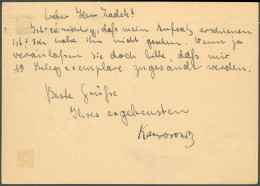 Lieber Herr Zadek!
Ist es richtig, daß mein Aufsatz erschienen
ist? Ich habe ihn nicht gesehen. Wenn ja
veranlassen Sie doch bitte, daß mir
10 Belegexemplare zugesandt werden.
Beste Grüße
Ihres ergebensten